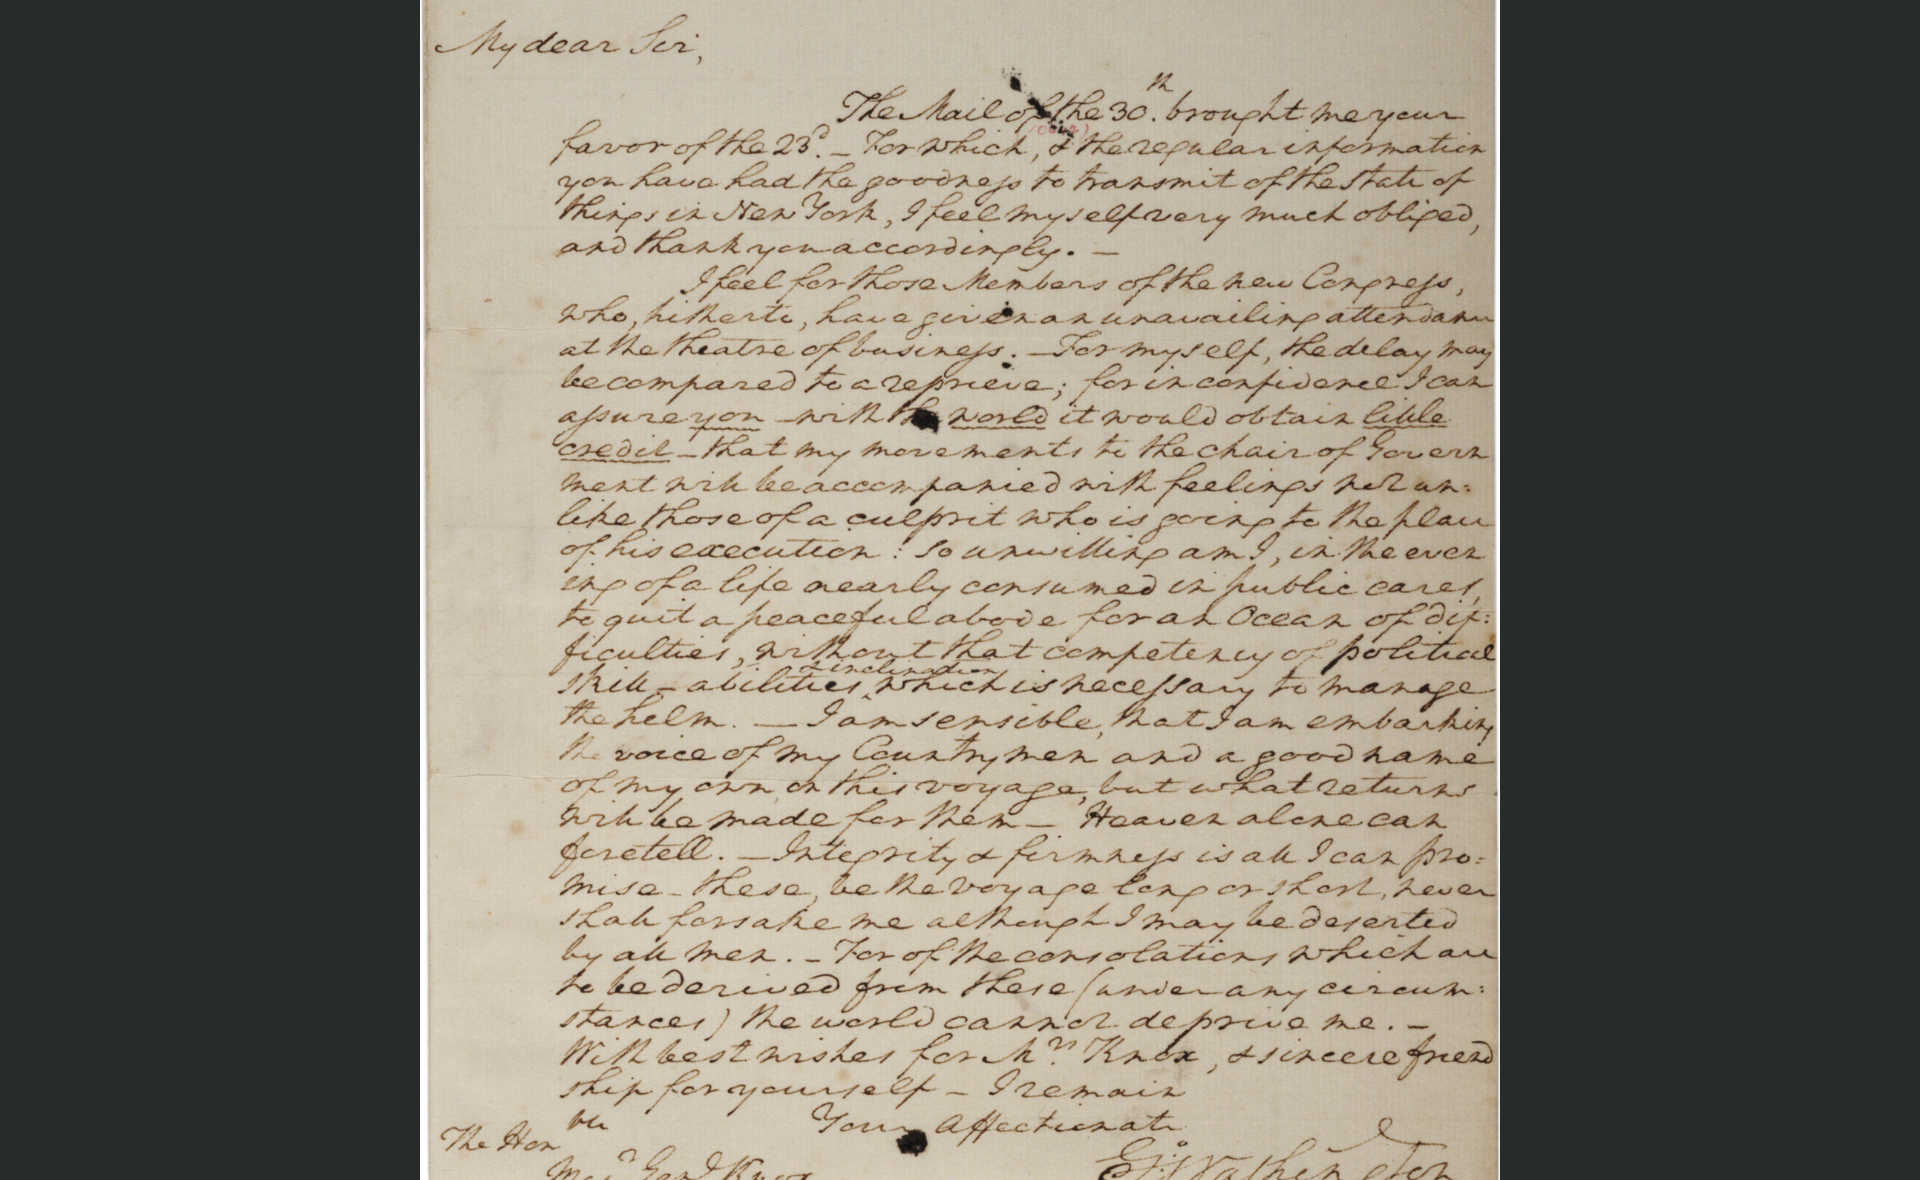 My dear Sir,
The Mail of the 30th. brought me your
favor of the 23d. — For which, & the regular information
you have had the goodness to transmit of the state of
things in New York, I feel myself very much obliged,
and thank you accordingly. —
I feel for those Members of the new Congress,
who, hitherto, have given an unavailing attendance
at the theatre of business. — For myself, the delay may
be compared to a reprieve; for in confidence I can
assure you — with the world it would obtain little
credit — that my movements to the chair of Govern
ment will be accompanied with feelings not un:
like those of a culprit who is going to the place
of his execution: so unwilling am I, in the even
ing of a life nearly consumed in public cares,
to quit a peaceful abode for an Ocean of dif:
ficulties, without that competency of political
& inclination
skill – abilities, which is necessary to manage
the helm. — I am sensible, that I am embarking
the voice of my Countrymen and a good name
of my own on this voyage, but what returns
will be made for them — Heaven alone can
foretell. — Integrity & firmness is all I can pro:
mise – these, be the voyage long or short, never
shall forsake me although I may be deserted
by all men. – For of the consolations which are
to be derived from these (under any circum:
stances) the world cannot deprive me. –
With best wishes for Mrs. Knox, & sincere friend
ship for yourself – I remain
Your Affectionate
The Honble
Majr. Genl Knox
Go: Washington